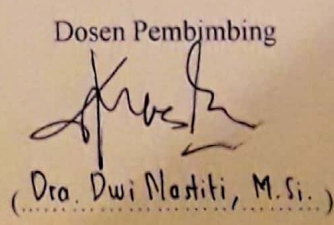 Dosen Pembimbing
(Dra. Dwi Nastiti, M.Si.)